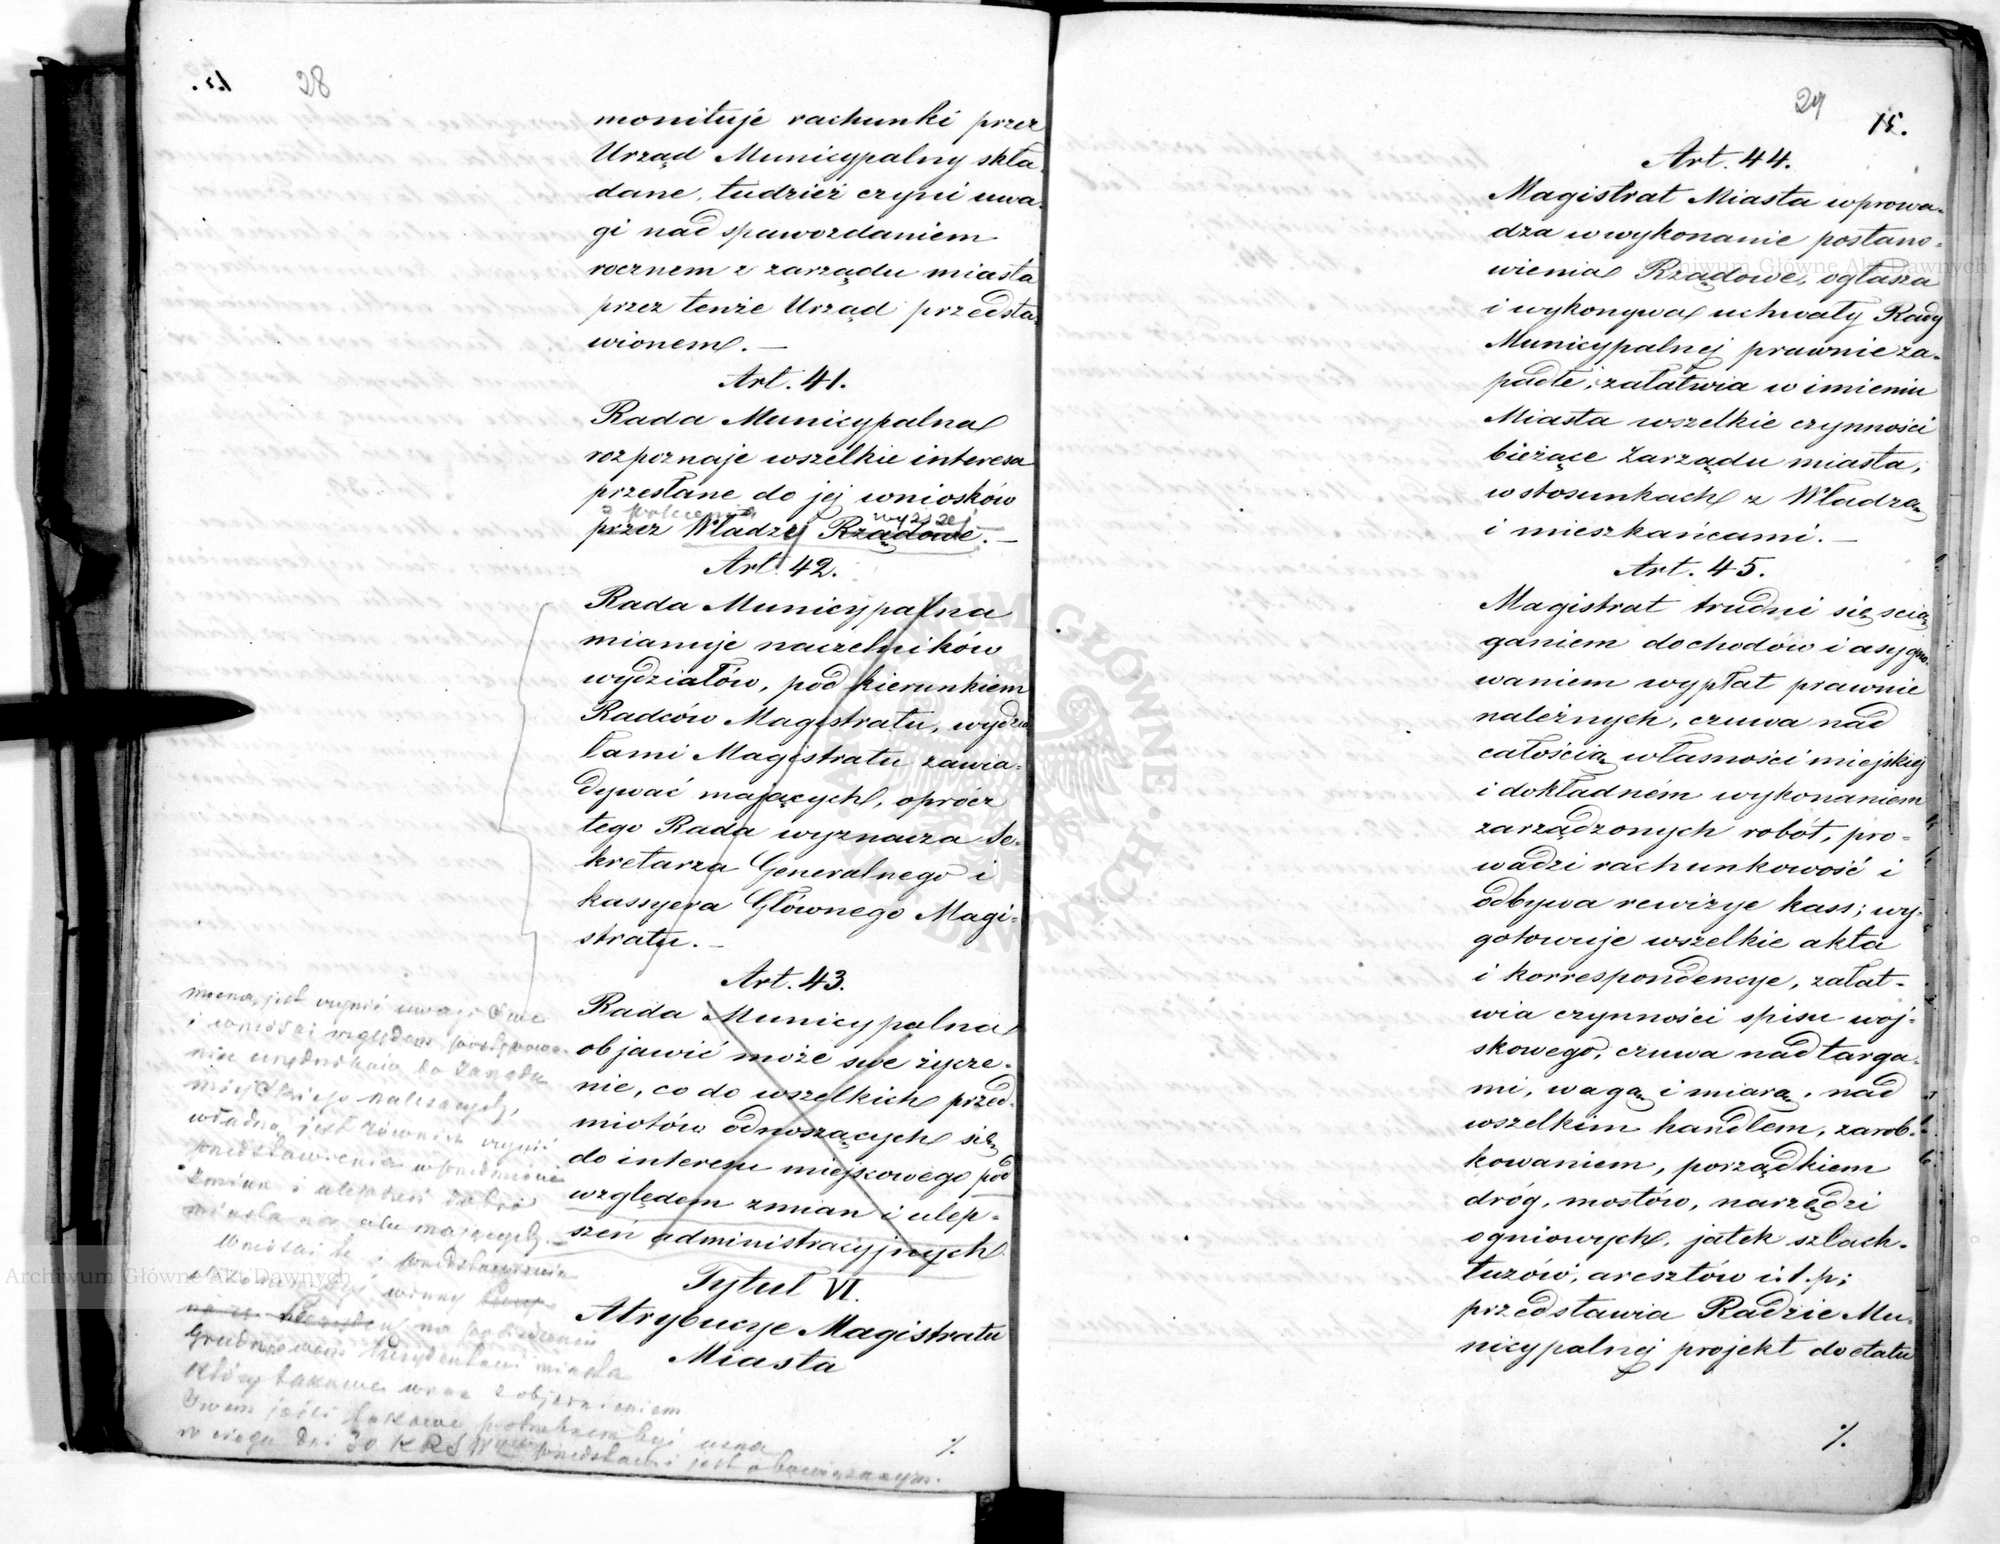 28
monituje rachunki przez
Urząd Municypalny skła-
dane, tudzież czyni uwa-
gi nad spawozdaniem
rocznem z zarządu miasta
przez tenże Urząd przedsta-
wionem. —
Art. 41.
Rada Municypalna
rozpoznaje wszelkie interesa
przesłane do jej wniosków
z polecenia wyższej
przez Władzy Rządowe. —
Art. 42.
Rada Municypalna
mianuje naczelników
wydziałów, pod kierunkiem
Radców Magistratu, wydzia
łami Magistratu zawia-
dywać mających, oprócz
tego Rada wyznacza Se-
kretarza Generalnego i
kassyera Głównego Magi-
stratu. —
Art. 43.
Rada Municypalna
objawić może swe życze-
nie, co do wszelkich przed-
miotów odnoszących się
do interesu miejscowego pod
względem zmian i ulep-
szeń administracyjnych
mocna jest czynić uwagi swe
i wnioski względem postępowa-
nia urzędników do Zarządu
miejskiego należących,
władna jest również czynić
przedstawienia w przedmiocie
zmian i ulepszeń dobro
miasta na celu mających. —
Wnioski te i przedstawienia
winny
na posiedzeniu
Grudniowem Prezydentowi miasta
który takowe wraz z objaśnieniem
swem jeśli takowe potrzebnem być uzna
w ciągu dni 30 KRSW przedstawić jest obowiązanym.
Tytuł VI.
Atrybucye Magistratu
Miasta
%
29
15.
Art. 44.
Magistrat Miasta wprowa-
dza w wykonanie postano-
wienia Rządowe, ogłasza
i wykonywa uchwały Rady
Municypalnej prawnie za-
padłe; załatwia w imieniu
Miasta wszelkie czynności
bieżące Zarządu miasta,
w stosunkach z Władzą
i mieszkańcami. —
Art. 45.
Magistrat trudni się ścią
ganiem dochodów i asygno-
waniem wypłat prawnie
należnych, czuwa nad
całością własności miejskiej
i dokładném wykonaniem
zarządzonych robót, pro-
wadzi rachunkowość i
odbywa rewizye kass; wy-
gotowuje wszelkie akta
i korrespondencye, załat-
wia czynności spisu woj-
skowego, czuwa nad targa-
mi, wagą i miarą, nad
wszelkim handlem, zarob-
kowaniem, porządkiem
dróg, mostów, narzędzi
ogniowych, jatek szlach-
tuzów, aresztów i t. p;
przedstawia Radzie Mu-
nicypalnej projekt do etatu
%
Archiwum Główne Akt Dawnych
Archiwum Główne Akt Dawnych